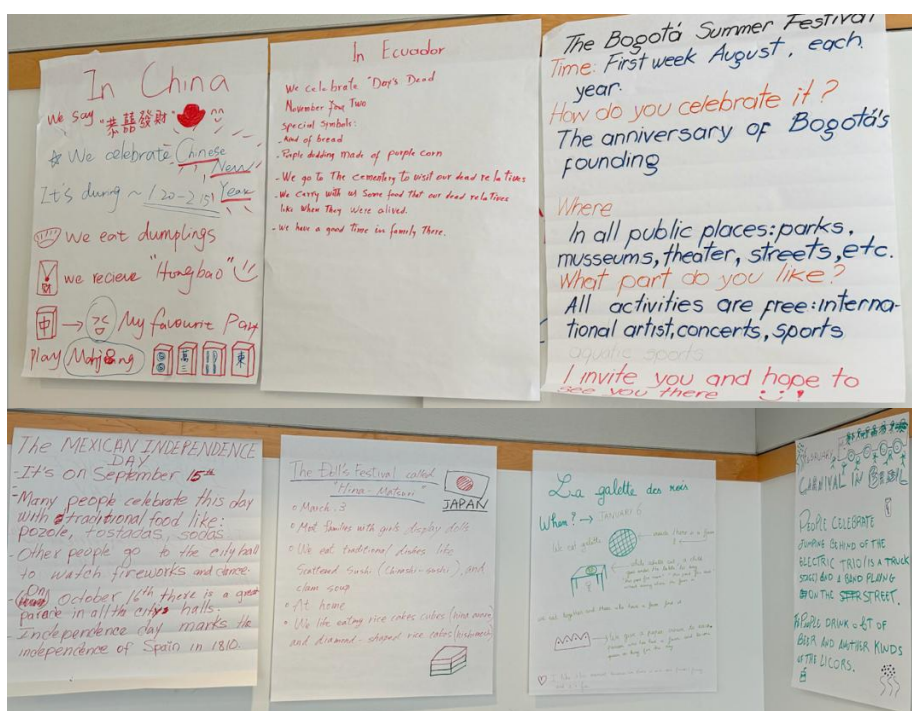 In China
We say "恭囍發財"
☆ We celebrate Chinese
New
It's during ~ 1/20-2/15 Year
We eat dumplings
we recieve "Hungbao"
中 → My favourite Part
play Mahjong 萬 東
In Ecuador
We celebrate "Day's Dead
November four Two
special symbols:
-Kind of bread
-People dudding made of purple corn
-We go to The cementery to visit our dead relatives
-We carry with us some food that our dead relatives
like when They were alived.
-We have a good time in family There.
The Bogotá Summer Festival
Time: First week August, each
year.
How do you celebrate it?
The anniversary of Bogotá's
founding
Where
In all public places: parks,
musseums, theater, streets, etc.
What part do you like?
All activities are free: interna-
tional artist, concerts, sports
aquatic sports
I invite you and hope to
see you there
The MEXICAN INDEPENDENCE
DAY
-It's on September 15th
-Many people celebrate this day
with traditional food like:
pozole, tostadas, sodas
-Other people go to the city hall
to watch fireworks and dance.
-On October 16th there is a great
parade in all the citys halls.
-Independence day marks the
independence of Spain in 1810.
The Doll's Festival called
"Hina-Matsuri"
JAPAN
March. 3
Most families with girls display dolls
We eat traditional dishes like
Scattered Sushi (Chirashi-sushi), and
clam soup
At home
We like eating rice cakes cubes (hina
and diamond-shaped rice cakes (hishimochi)
La galette des rois
When? → JANUARY 6
We eat galette
FEBRUARY
CARNIVAL IN BRAZIL
PEOPLE CELEBRATE
JUMPING BEHIND OF THE
ELECTRIC TRIO (IS A TRUCK
STAGE) AND A BAND PLAYING
ON THE STREET.
PEOPLE DRINK a LOT OF
BEER AND ANOTHER KINDS
OF THE LICORS.